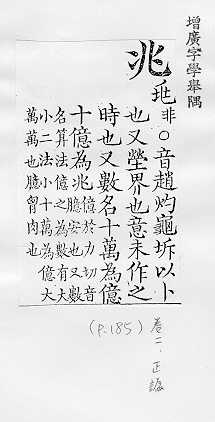 增廣字學舉隅
兆
𠧞非〇音趙灼龜坼以卜
也又塋界也意未作之
時也又數名十萬為億
十億為兆億於力切音
臆安也又數
名算法億之為數有大
小二法小十萬為億大
萬萬也臆胷肉也
卷二．正譌
(P.185)